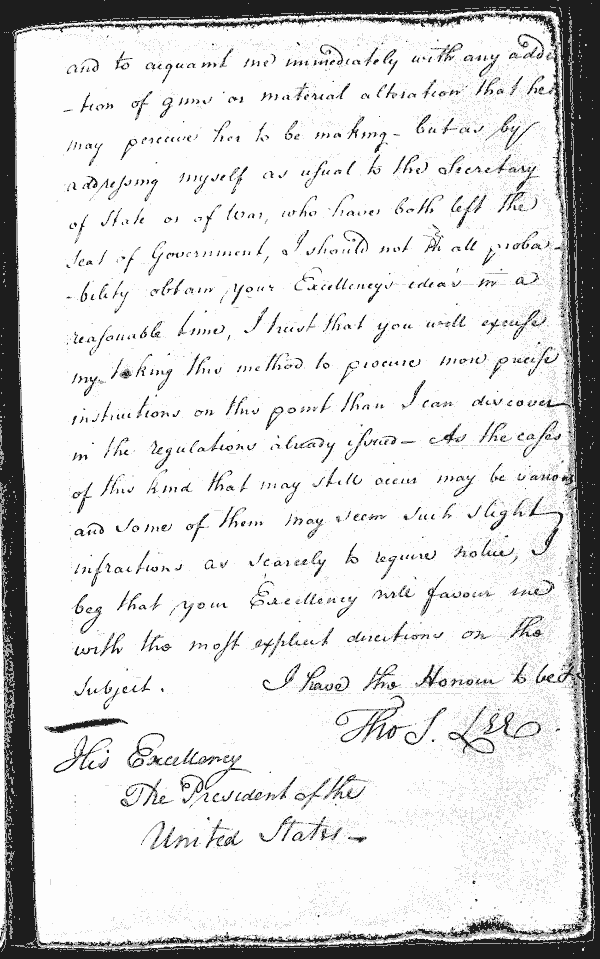 and to acquaint me immediately with any addi
-tion of guns or material alteration that he
may perceive her to be making - but as by
addressing myself as usual to the Secretary
of State or of War, who have both left the
seat of Government, I should not in all proba-
-bility obtain your Excellency's idea's in a
reasonable time, I trust that you will excuse
my taking this method to procure more precise
instructions on this point than I can discover
in the regulations already issued - As the cases
of this kind that may still occur may be various
and some of them may seem such slight
infractions as scarcely to require notice, I
beg that your Excellency will favour me
with the most explicit directions on the
subject. I have the Honour to be &c
Tho S. Lee.
His Excellency
The President of the
United States -